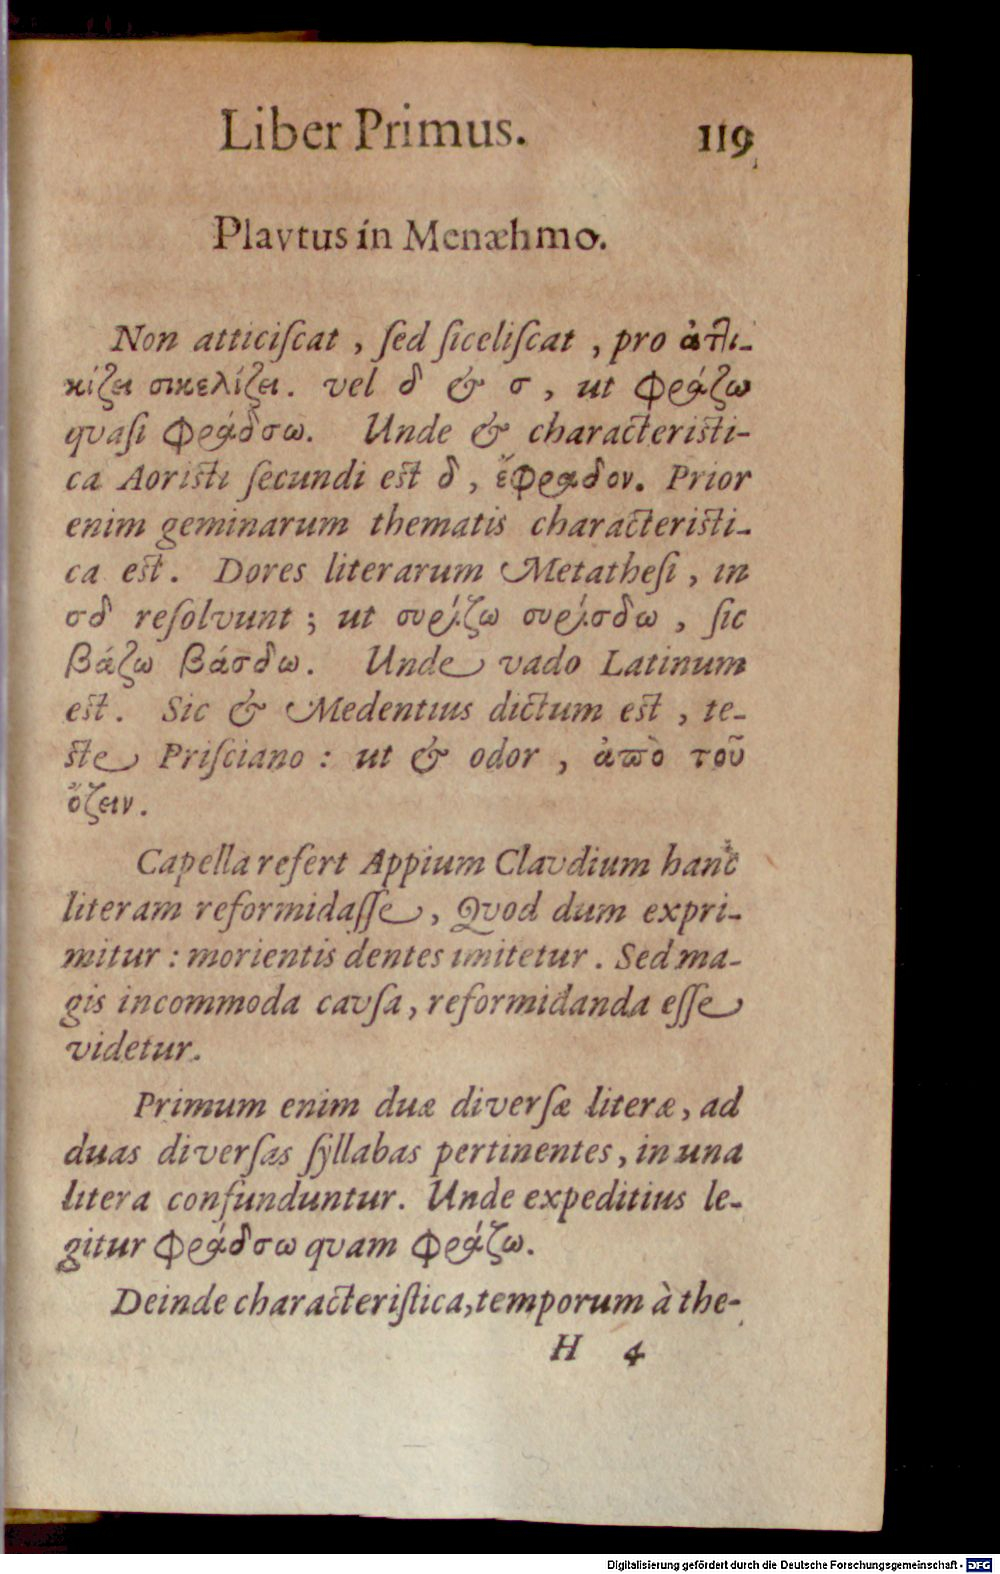 Liber Primus. 119
Plavtus in Menæhmo.
Non atticiſcat , ſed ſiceliſcat , pro ἀττι-
κίζει σικελίζει. vel δ & σ , ut φράζω
qvaſi φράδσω. Unde & characteriſti-
ca Aoriſti ſecundi eſt δ , ἔφραδον. Prior
enim geminarum thematis characteriſti-
ca eſt. Dores literarum Metatheſi , in
σδ reſolvunt ; ut συρίζω συρίσδω , ſic
βάζω βάσδω. Unde vado Latinum
eſt. Sic & Medentius dictum eſt , te-
ſte Priſciano : ut & odor , ἀπὸ τοῦ
ὄζειν.
Capella refert Appium Clavdium hanc
literam reformidaſſe , Qvod dum expri-
mitur : morientis dentes imitetur. Sed ma-
gis incommoda cavſa, reformidanda eſſe
videtur.
Primum enim duæ diverſæ literæ, ad
duas diverſas ſyllabas pertinentes, in una
litera confunduntur. Unde expeditius le-
gitur φράδσω quam φράζω.
Deinde characteriſtica, temporum à the-
H 4
Digitalisierung gefördert durch die Deutsche Forschungsgemeinschaft - DFG